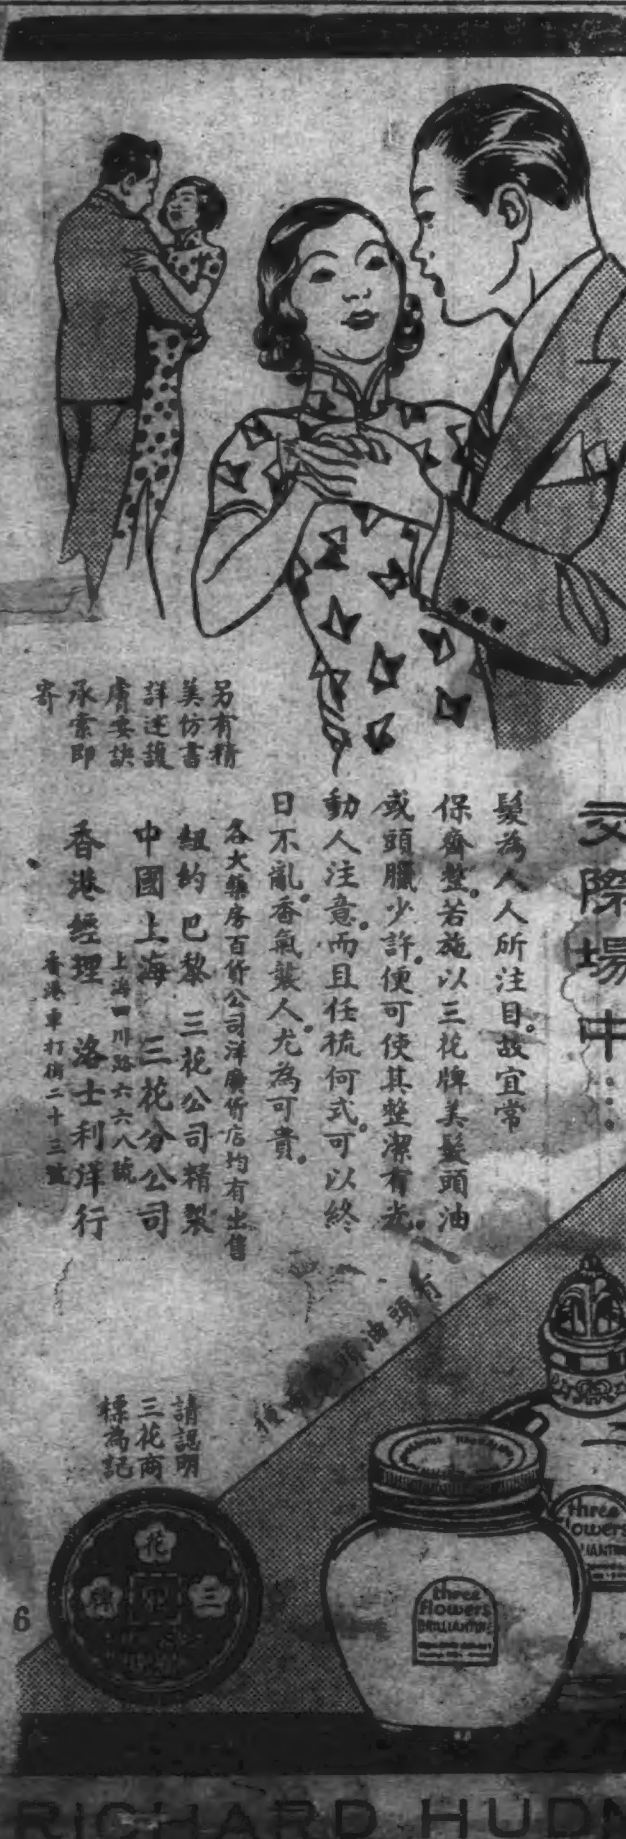 交際場中⋯
髮為人人所注目。故宜常
保齊整。若施以三花牌美髮頭油
或頭臘少許。便可使其整潔有光。
動人注意。而且任梳何式。可以終
日不亂。香氣襲人。尤為可貴。
各大藥房百貨公司洋廣貨店均有出售
紐約 巴黎 三花公司精製
中國上海 三花分公司
上海四川路六六八號
香港經理 洛士利洋行
香港車打街二十三號
另有精
美仿書
詳述護
膚要訣
承索即
寄
有頭油
請認明
三花商
標為記
花
三
three
flowers
BRILLIANTINE
three
flowers
6
RICHARD HUDN